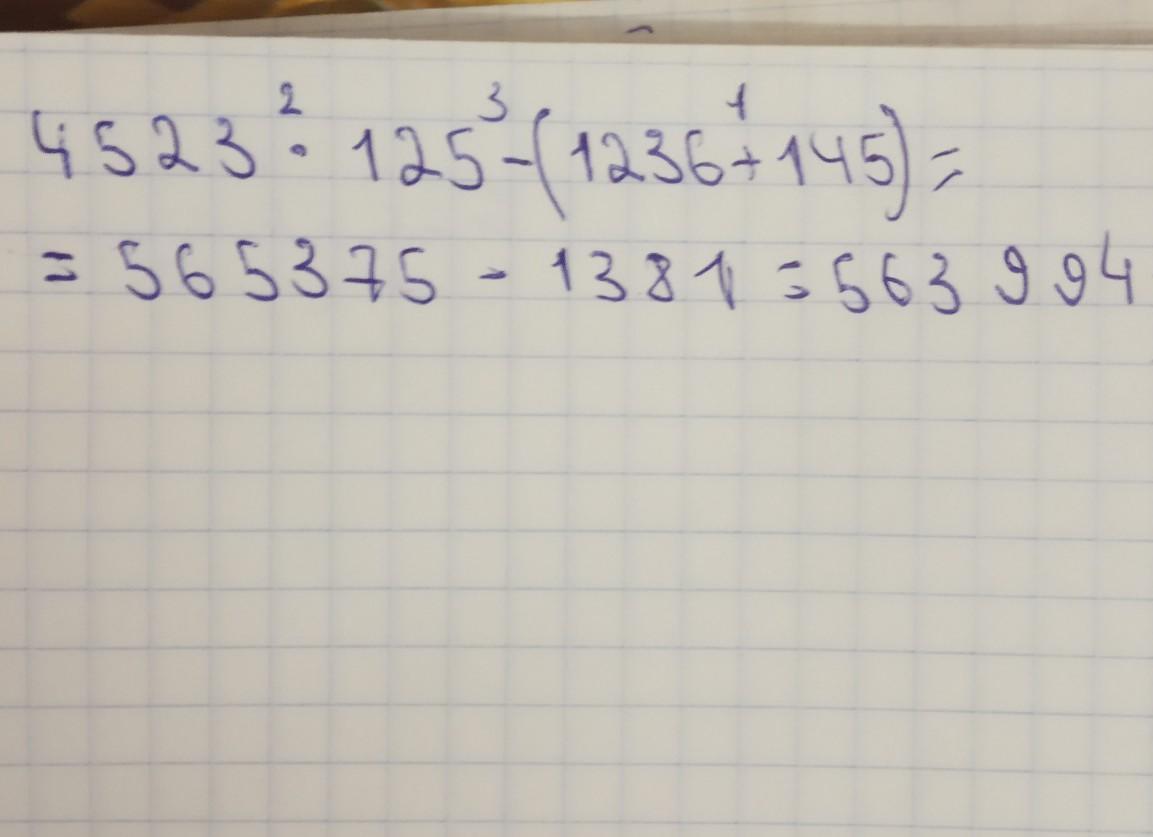 4523 ² · 125 ³ - (1236 ¹ + 145) =
= 565375 - 1381 = 563 994